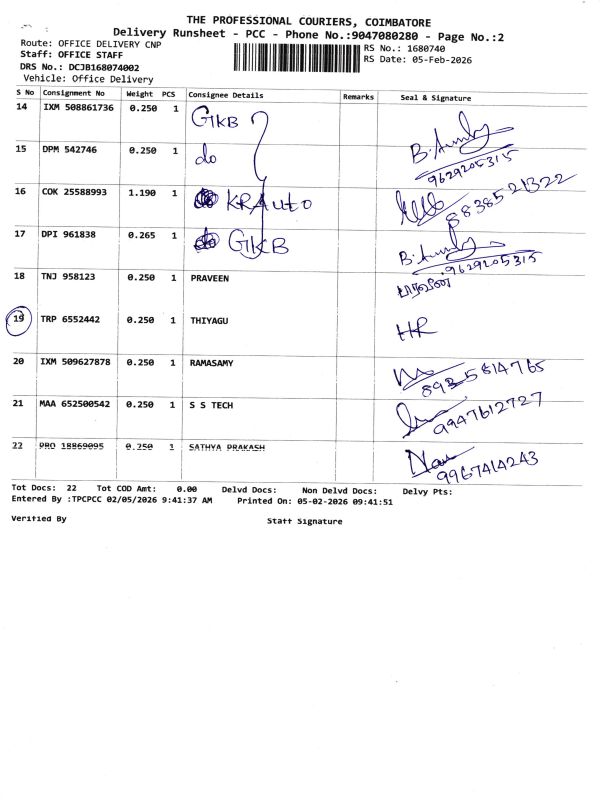 THE PROFESSIONAL COURIERS, COIMBATORE
Delivery Runsheet - PCC - Phone No.:9047080280 - Page No.:2
Route: OFFICE DELIVERY CNP
RS No.: 1680740
Staff: OFFICE STAFF
RS Date: 05-Feb-2026
DRS No.: DCJB168074002
Vehicle: Office Delivery
S No Consignment No Weight PCS Consignee Details Remarks Seal & Signature
14 IXM 508861736 0.250 1 GKB
15 DPM 542746 0.250 1 do 9629205315
16 COK 25588993 1.190 1 KR Auto 8838521322
17 DPI 961838 0.265 1 GKB 9629205315
18 TNJ 958123 0.250 1 PRAVEEN பரவீன்
19 TRP 6552442 0.250 1 THIYAGU HR
20 IXM 509627878 0.250 1 RAMASAMY 8925814765
21 MAA 652500542 0.250 1 S S TECH 9947612727
22 PRO 18869095 0.250 1 SATHYA PRAKASH 9967414243
Tot Docs: 22 Tot COD Amt: 0.00 Delvd Docs: Non Delvd Docs: Delvy Pts:
Entered By :TPCPCC 02/05/2026 9:41:37 AM Printed On: 05-02-2026 09:41:51
Verified By Staff Signature